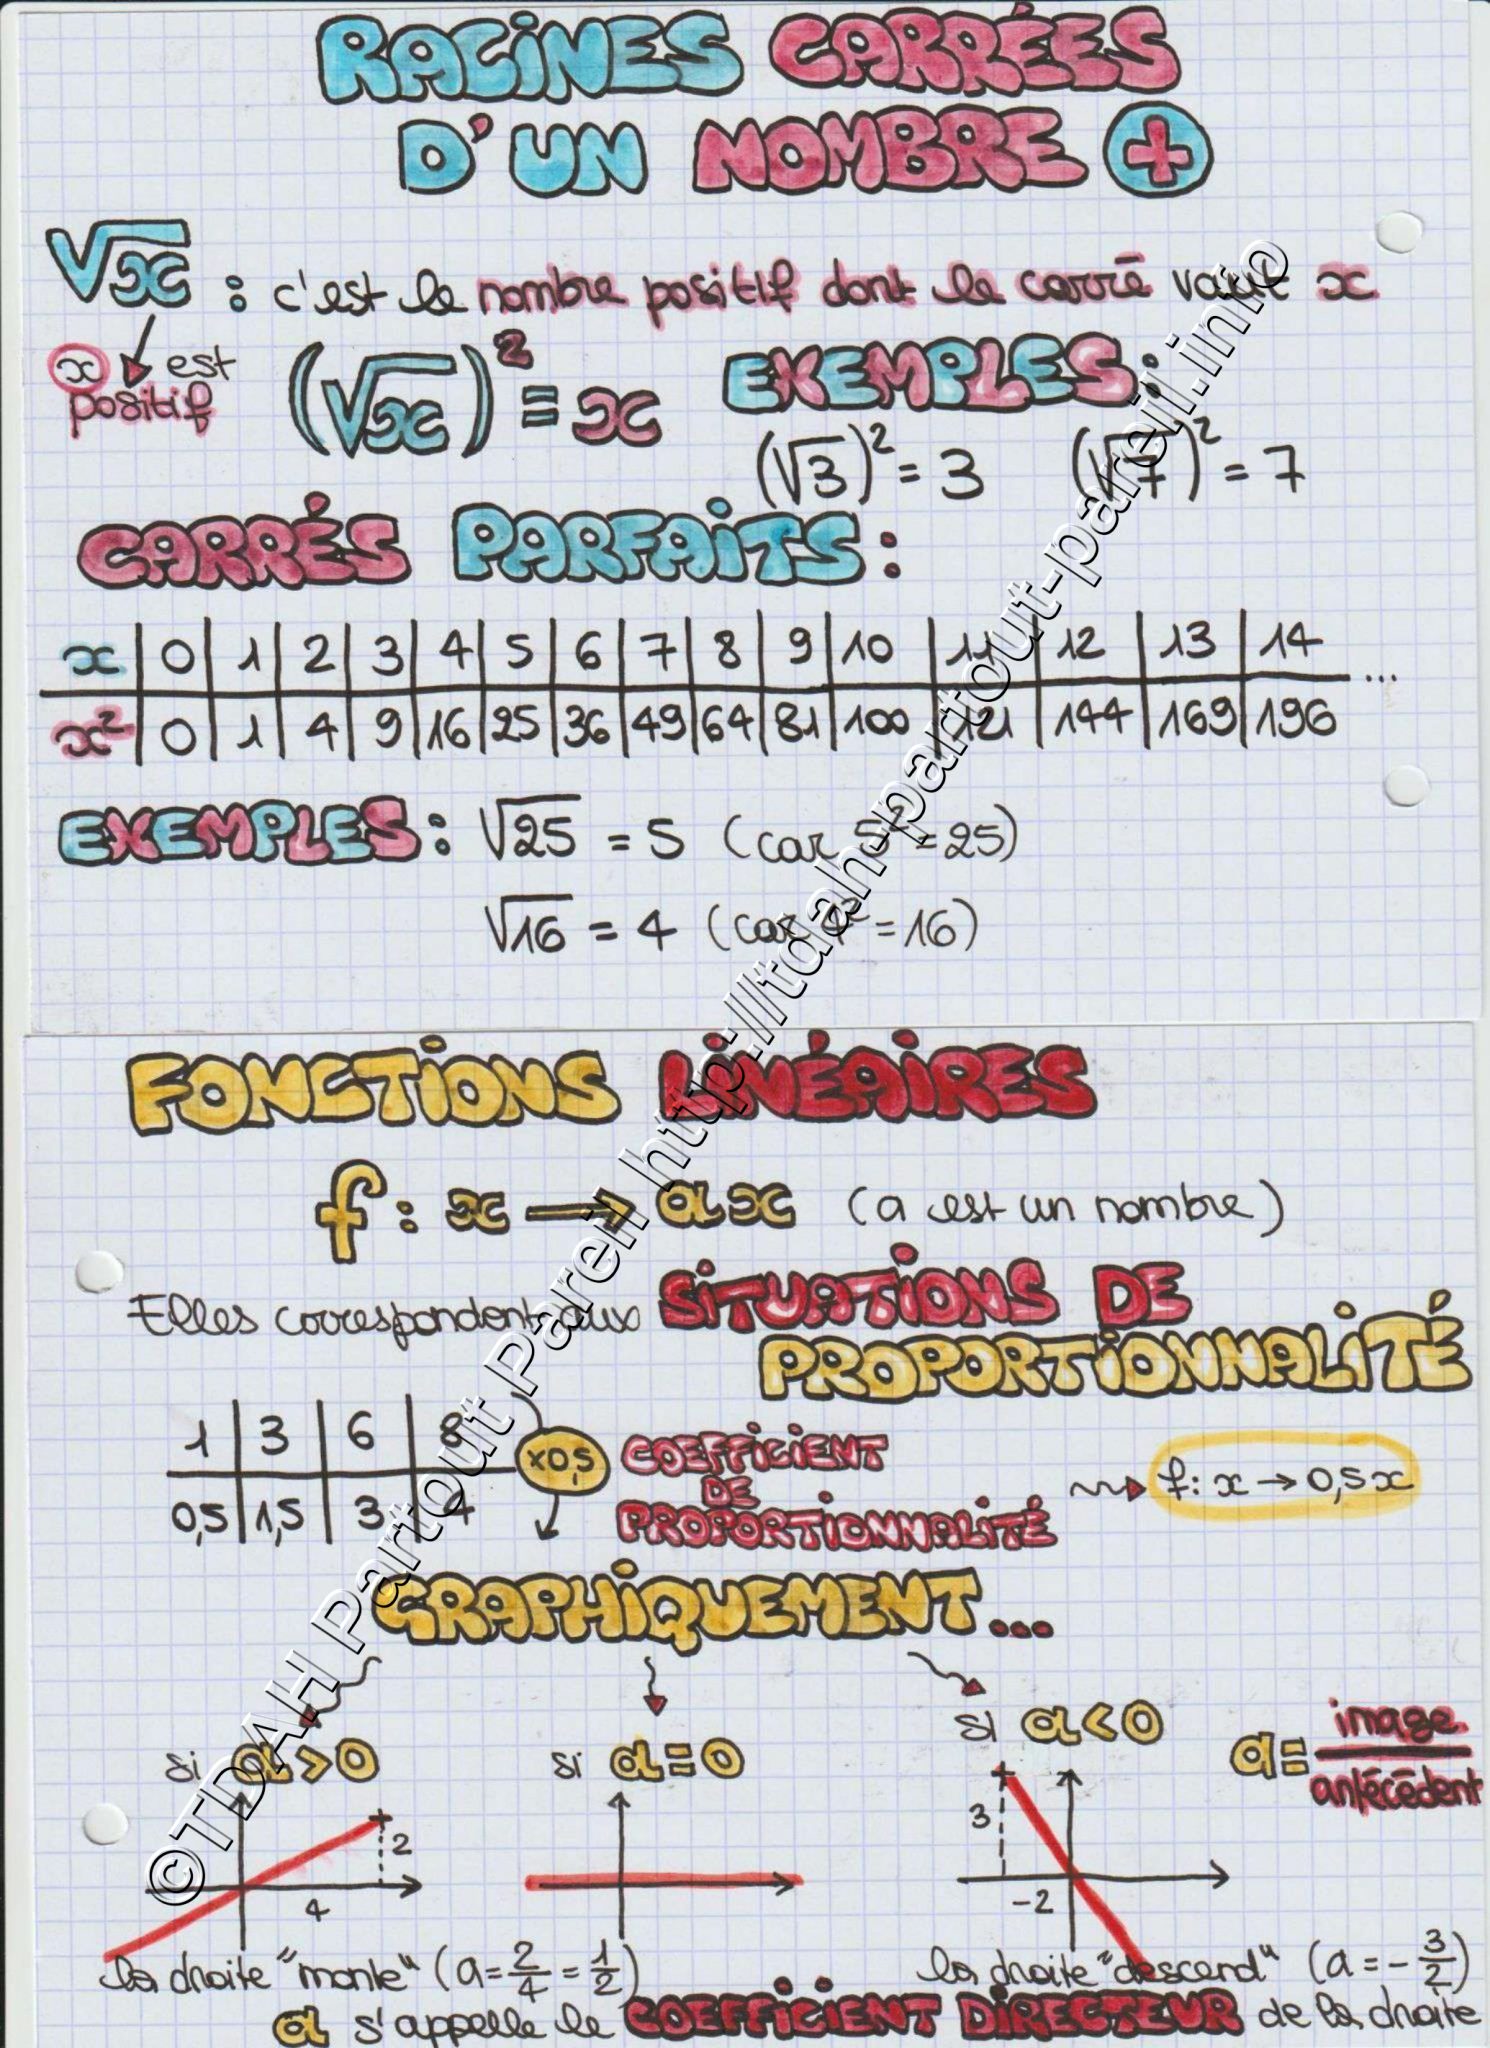 RACINES CARRÉES
D'UN NOMBRE +
√x : c'est le nombre positif dont le carré vaut x
x est
positif
(√x)² = x
EXEMPLES :
(√3)² = 3 (√7)² = 7
CARRÉS PARFAITS :
x | 0 | 1 | 2 | 3 | 4 | 5 | 6 | 7 | 8 | 9 | 10 | 11 | 12 | 13 | 14 ...
x² | 0 | 1 | 4 | 9 | 16 | 25 | 36 | 49 | 64 | 81 | 100 | 121 | 144 | 169 | 196
EXEMPLES : √25 = 5 (car 5² = 25)
√16 = 4 (car 4² = 16)
FONCTIONS LINÉAIRES
f : x → ax (a est un nombre)
Elles correspondent aux SITUATIONS DE
PROPORTIONNALITÉ
1 | 3 | 6 | 8
0,5 | 1,5 | 3 | 4
×0,5
COEFFICIENT
DE
PROPORTIONNALITÉ
f : x → 0,5x
GRAPHIQUEMENT...
si a > 0
si a = 0
si a < 0
a = image
antécédent
2
4
3
-2
la droite "monte" (a = 2/4 = 1/2)
la droite "descend" (a = - 3/2)
a s'appelle le COEFFICIENT DIRECTEUR de la droite
©TDAH Partout Pareil http://tdah-partout-pareil.info